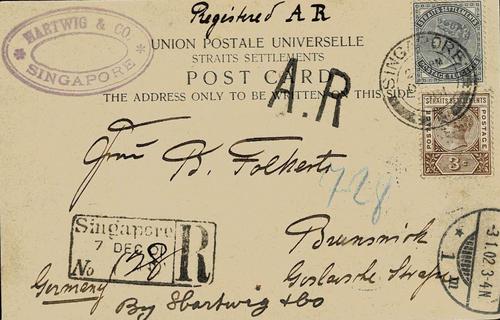 Registered A R
HARTWIG & CO.
SINGAPORE
STRAITS SETTLEMENTS
UNION POSTALE UNIVERSELLE
STRAITS SETTLEMENTS
POST CARD
THE ADDRESS ONLY TO BE WRITTEN ON THIS SIDE
SINGAPORE
A.R
STRAITS SETTLEMENTS
POSTAGE
POSTAGE
3c
B. Folkerts
728
Singapore
7 DEC 01
No 728
R
Brunswick
Goslarsche Strasse
Germany
By Hartwig & Co
3 1.02 3-4N
1